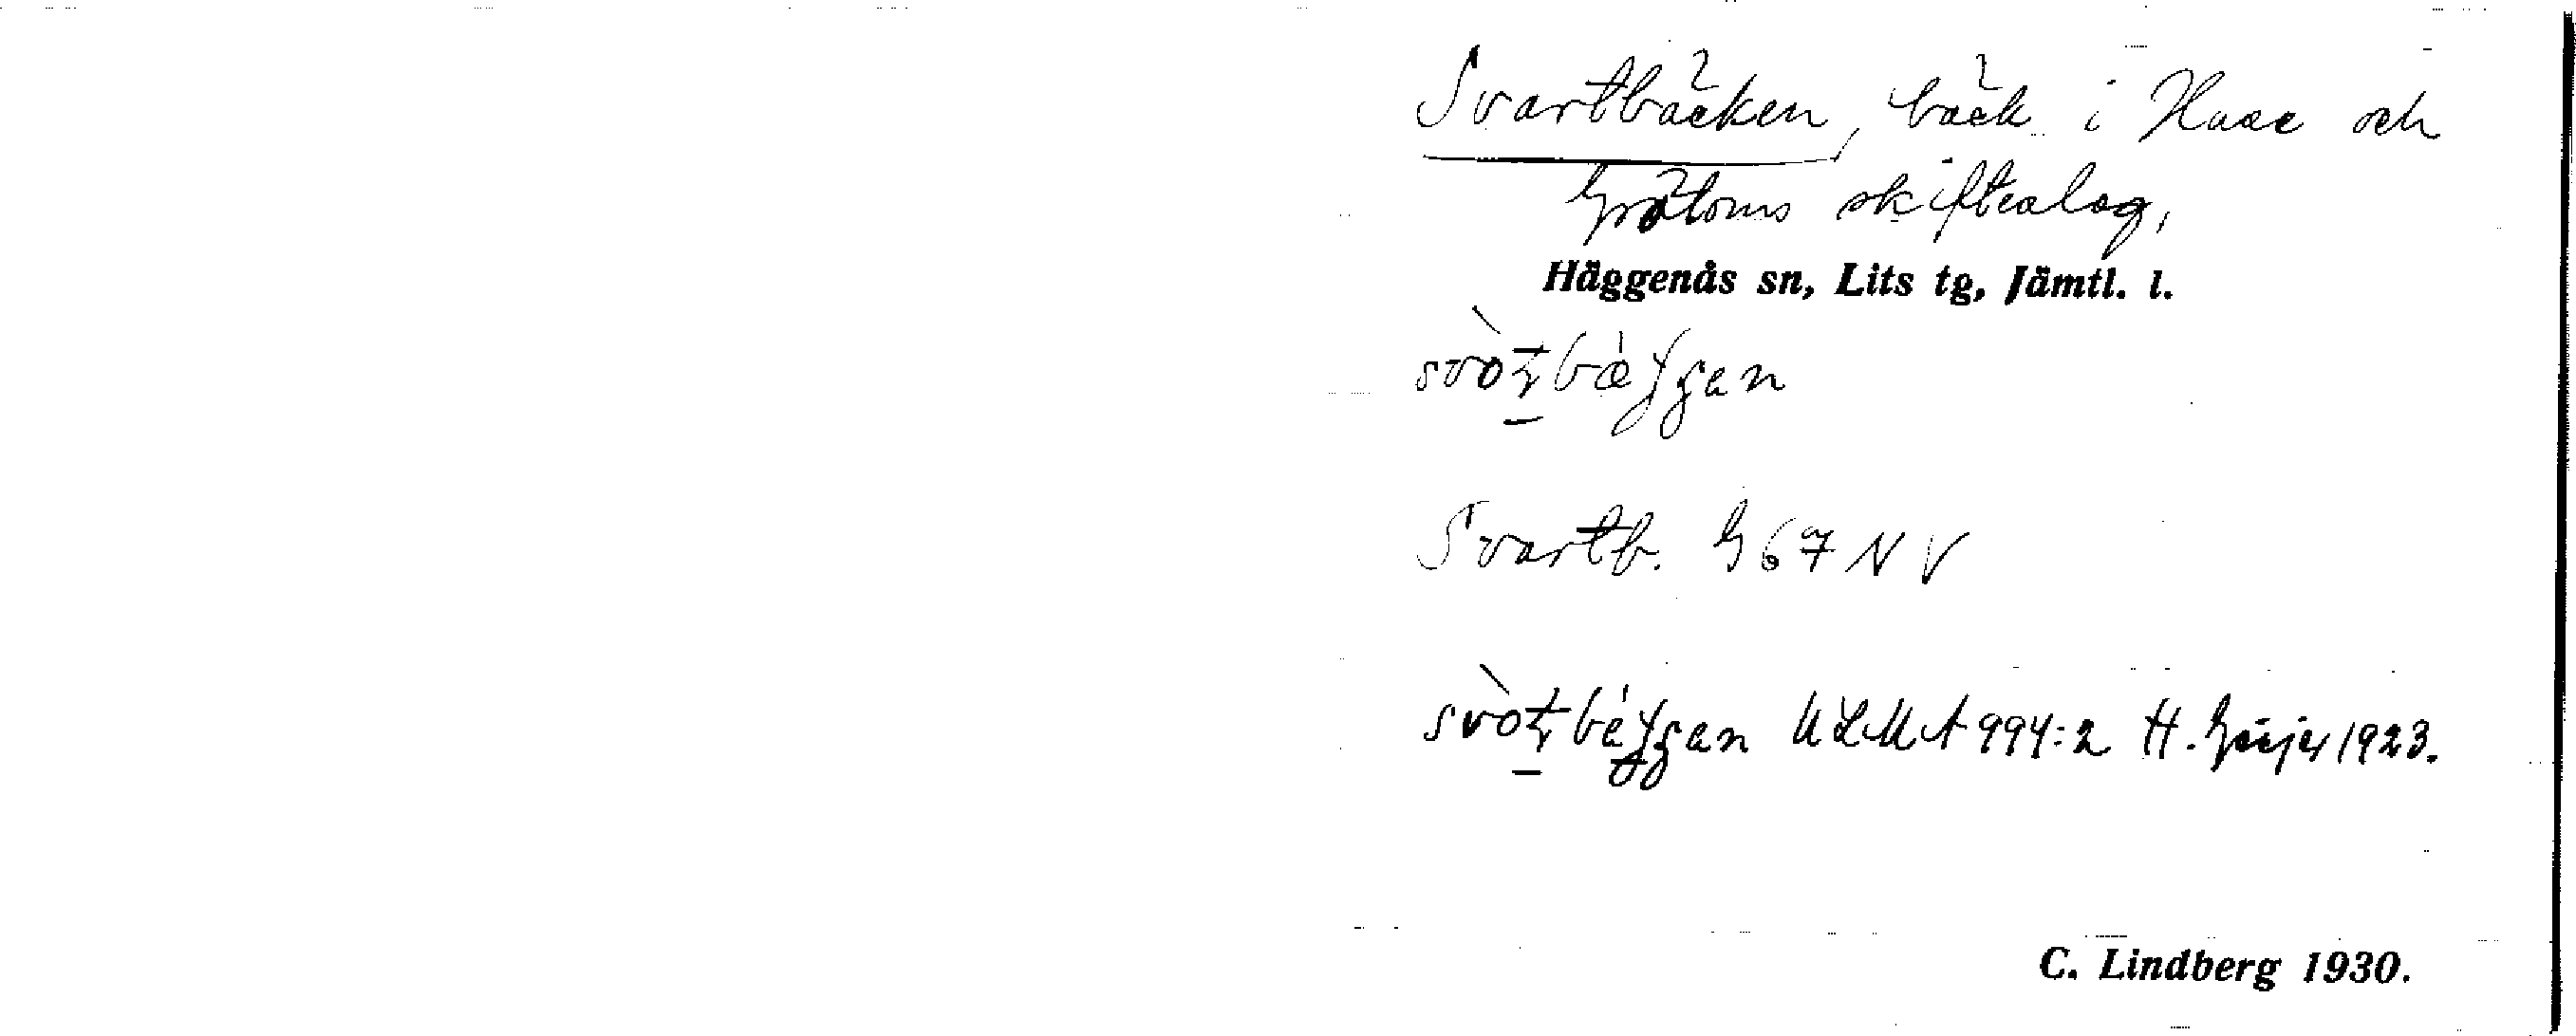 Svartbäcken, bäck i Huse och
Gråtoms skifteslag,
Häggenås sn, Lits tg, Jämtl. l.
Svartb. G67 NV
ULMA 994:2 H. Geijer 1923.
C. Lindberg 1930.